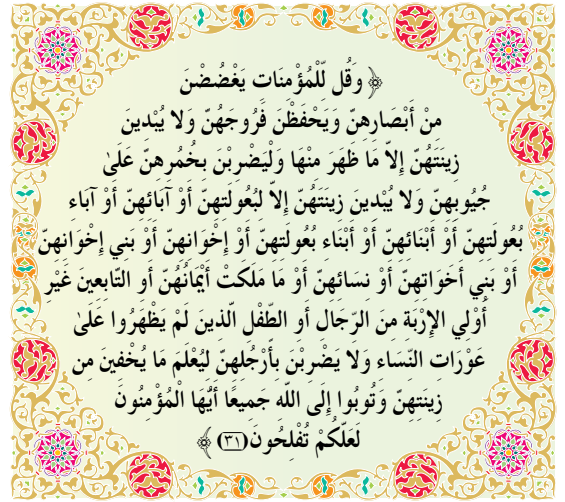 ﴿ وَقُل لِّلْمُؤْمِنَاتِ يَغْضُضْنَ
مِنْ أَبْصَارِهِنَّ وَيَحْفَظْنَ فُرُوجَهُنَّ وَلا يُبْدِينَ
زِينَتَهُنَّ إِلاَّ مَا ظَهَرَ مِنْهَا وَلْيَضْرِبْنَ بِخُمُرِهِنَّ عَلَىٰ
جُيُوبِهِنَّ وَلا يُبْدِينَ زِينَتَهُنَّ إِلاَّ لِبُعُولَتِهِنَّ أَوْ آبَائِهِنَّ أَوْ آبَاءِ
بُعُولَتِهِنَّ أَوْ أَبْنَائِهِنَّ أَوْ أَبْنَاءِ بُعُولَتِهِنَّ أَوْ إِخْوَانِهِنَّ أَوْ بَنِي إِخْوَانِهِنَّ
أَوْ بَنِي أَخَوَاتِهِنَّ أَوْ نِسَائِهِنَّ أَوْ مَا مَلَكَتْ أَيْمَانُهُنَّ أَوِ التَّابِعِينَ غَيْرِ
أُوْلِي الإِرْبَةِ مِنَ الرِّجَالِ أَوِ الطِّفْلِ الَّذِينَ لَمْ يَظْهَرُوا عَلَىٰ
عَوْرَاتِ النِّسَاءِ وَلا يَضْرِبْنَ بِأَرْجُلِهِنَّ لِيُعْلَمَ مَا يُخْفِينَ مِن
زِينَتِهِنَّ وَتُوبُوا إِلَى اللَّهِ جَمِيعًا أَيُّهَا الْمُؤْمِنُونَ
لَعَلَّكُمْ تُفْلِحُونَ (٣١) ﴾